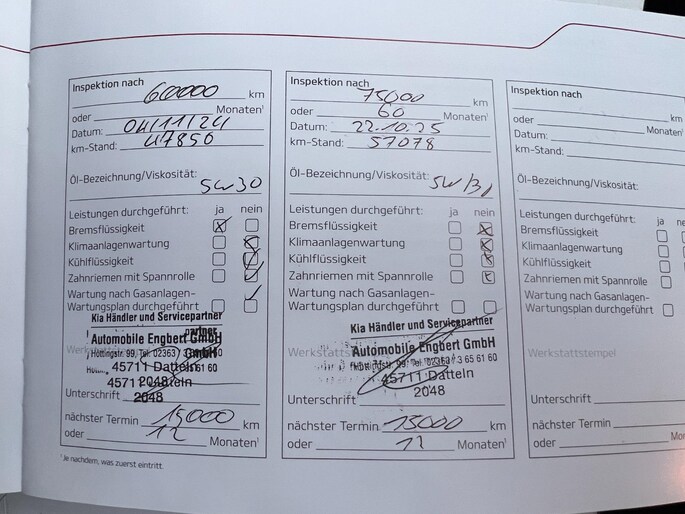 Inspektion nach
60000 km
oder Monaten¹
Datum: 04/11/24
km-Stand: 47850
Öl-Bezeichnung/Viskosität:
5W30
Leistungen durchgeführt: ja nein
Bremsflüssigkeit
Klimaanlagenwartung
Kühlflüssigkeit
Zahnriemen mit Spannrolle
Wartung nach Gasanlagen-
Wartungsplan durchgeführt
Kia Händler und Servicepartner
partner
Automobile Engbert GmbH
GmbH
Höttingstr. 99, Tel. 02363/ 61 60
45711 Datteln
45711 Datteln
2048
2048
Unterschrift
nächster Termin 15000 km
oder 12 Monaten¹
¹ Je nachdem, was zuerst eintritt.
Inspektion nach
75000 km
oder 60 Monaten¹
Datum: 22.10.25
km-Stand: 57078
Öl-Bezeichnung/Viskosität:
Leistungen durchgeführt: ja nein
Bremsflüssigkeit
Klimaanlagenwartung
Kühlflüssigkeit
Zahnriemen mit Spannrolle
Wartung nach Gasanlagen-
Wartungsplan durchgeführt
Kia Händler und Servicepartner
Automobile Engbert GmbH
99, Tel. 02363 / 3 65 61 60
45711 Datteln
2048
Unterschrift
nächster Termin 15000 km
oder 12 Monaten¹
Inspektion nach
oder Monaten
Datum:
km-Stand:
Öl-Bezeichnung/Viskosität:
Leistungen durchgeführt: ja
Bremsflüssigkeit
Klimaanlagenwartung
Kühlflüssigkeit
Zahnriemen mit Spannrolle
Wartung nach Gasanlagen-
Wartungsplan durchgeführt
Werkstattstempel
Unterschrift
nächster Termin
oder Mona